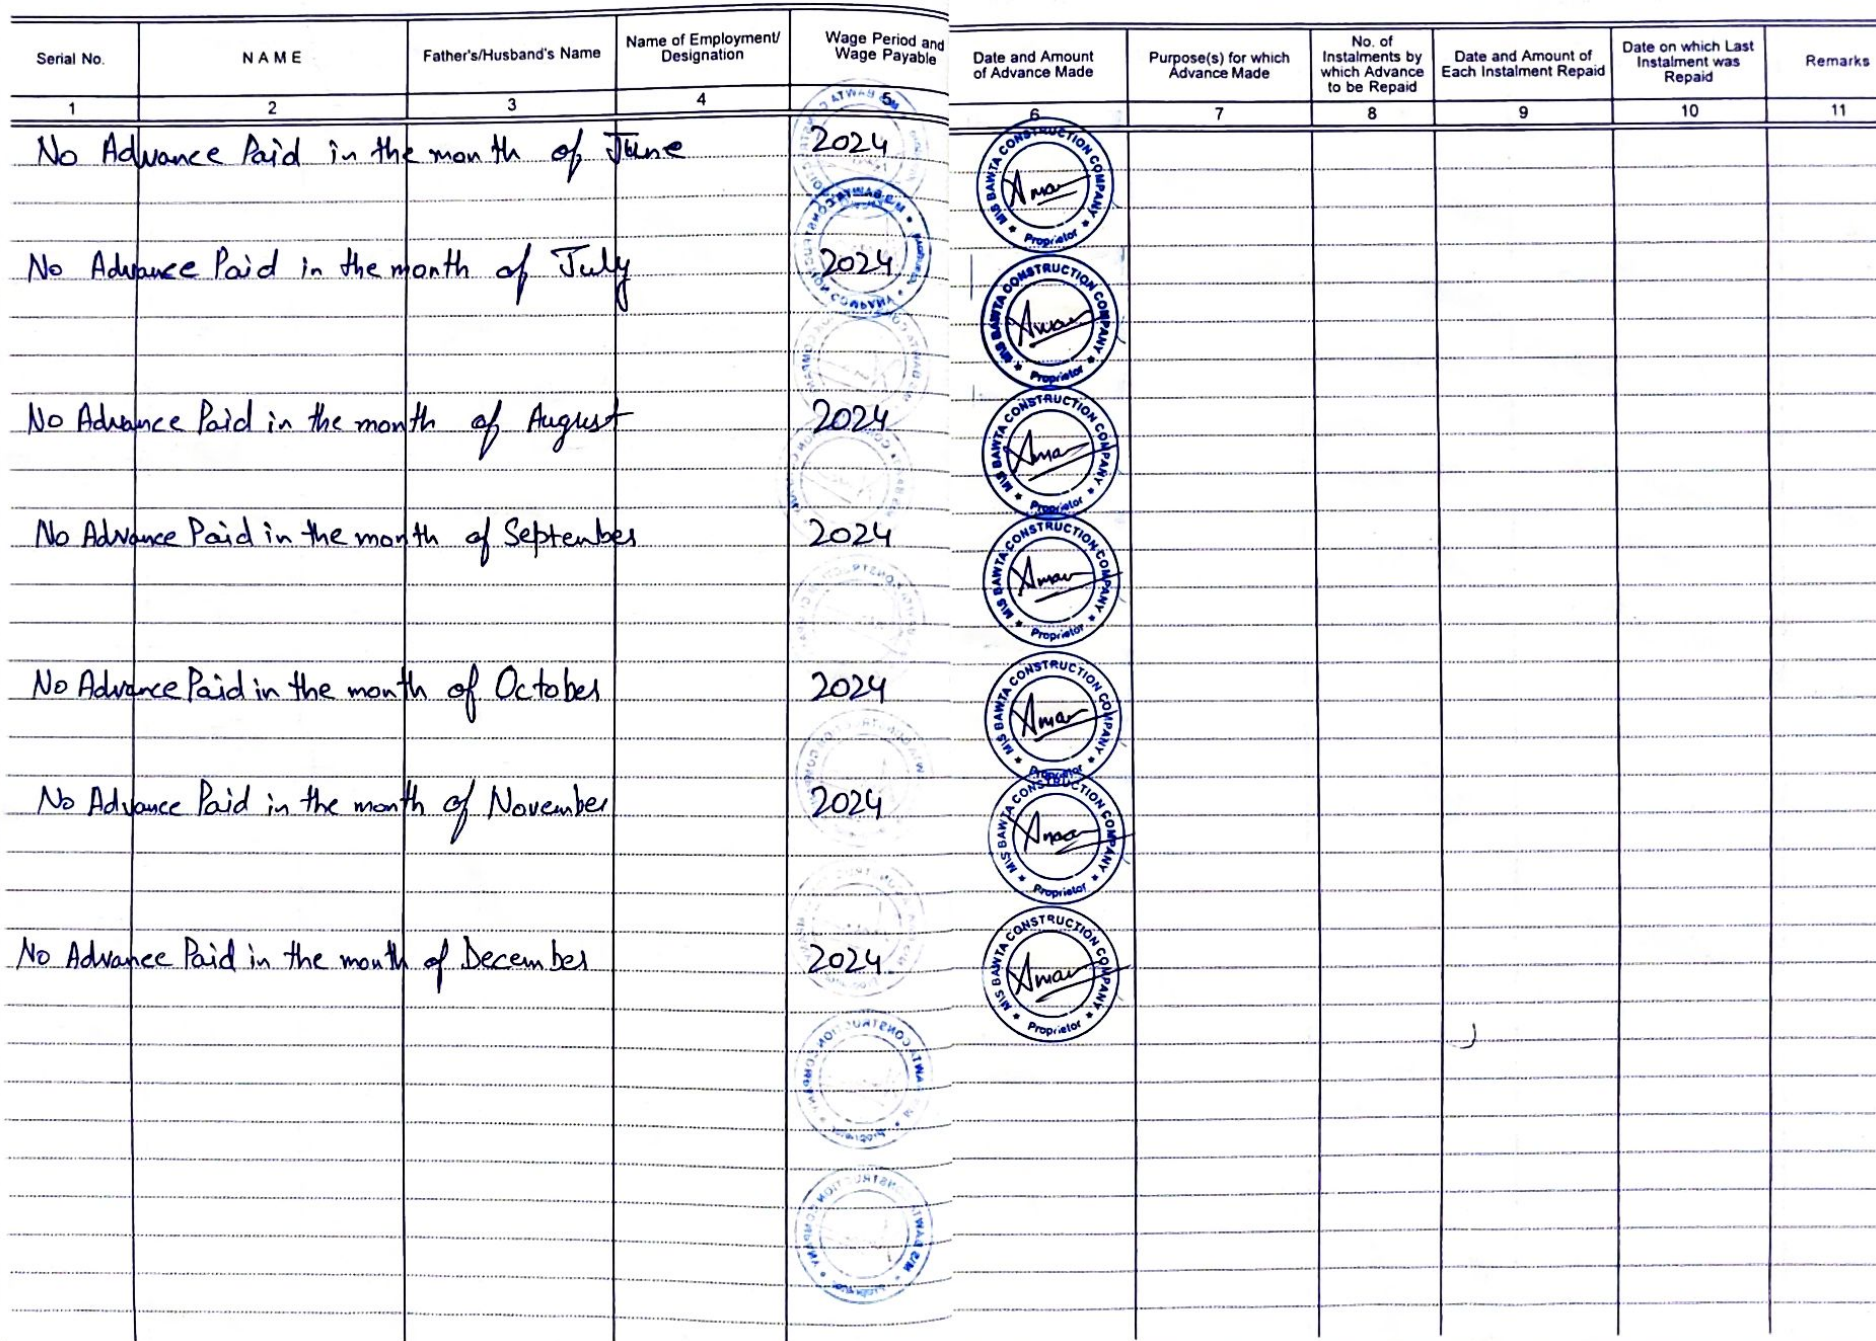 Serial No.
NAME
Father's/Husband's Name
Name of Employment/
Designation
Wage Period and
Wage Payable
Date and Amount
of Advance Made
Purpose(s) for which
Advance Made
No. of
Instalments by
which Advance
to be Repaid
Date and Amount of
Each Instalment Repaid
Date on which Last
Instalment was
Repaid
Remarks
1 2 3 4 5 6 7 8 9 10 11
No Advance Paid in the month of June 2024
M/S BAWTA CONSTRUCTION COMPANY
Proprietor
No Advance Paid in the month of July 2024
M/S BAWTA CONSTRUCTION COMPANY
Proprietor
No Advance Paid in the month of August 2024
M/S BAWTA CONSTRUCTION COMPANY
Proprietor
No Advance Paid in the month of September 2024
M/S BAWTA CONSTRUCTION COMPANY
Proprietor
No Advance Paid in the month of October 2024
M/S BAWTA CONSTRUCTION COMPANY
Proprietor
No Advance Paid in the month of November 2024
M/S BAWTA CONSTRUCTION COMPANY
Proprietor
No Advance Paid in the month of December 2024
M/S BAWTA CONSTRUCTION COMPANY
Proprietor